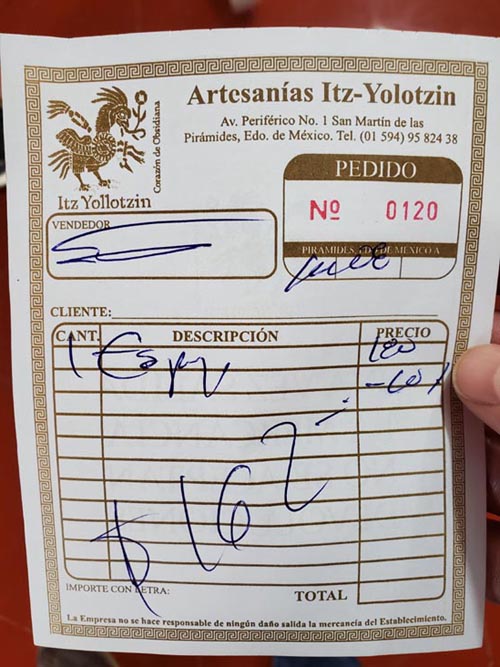 Artesanías Itz-Yolotzin
Av. Periférico No. 1 San Martín de las
Pirámides, Edo. de México. Tel. (01 594) 95 824 38
Corazón de Obsidiana
Itz Yollotzin
PEDIDO
Nº 0120
VENDEDOR
PIRAMIDES, EDO. DE MEXICO A
CLIENTE:
CANT. DESCRIPCIÓN PRECIO
1
$162
IMPORTE CON LETRA:
TOTAL
La Empresa no se hace responsable de ningún daño salida la mercancía del Establecimiento.